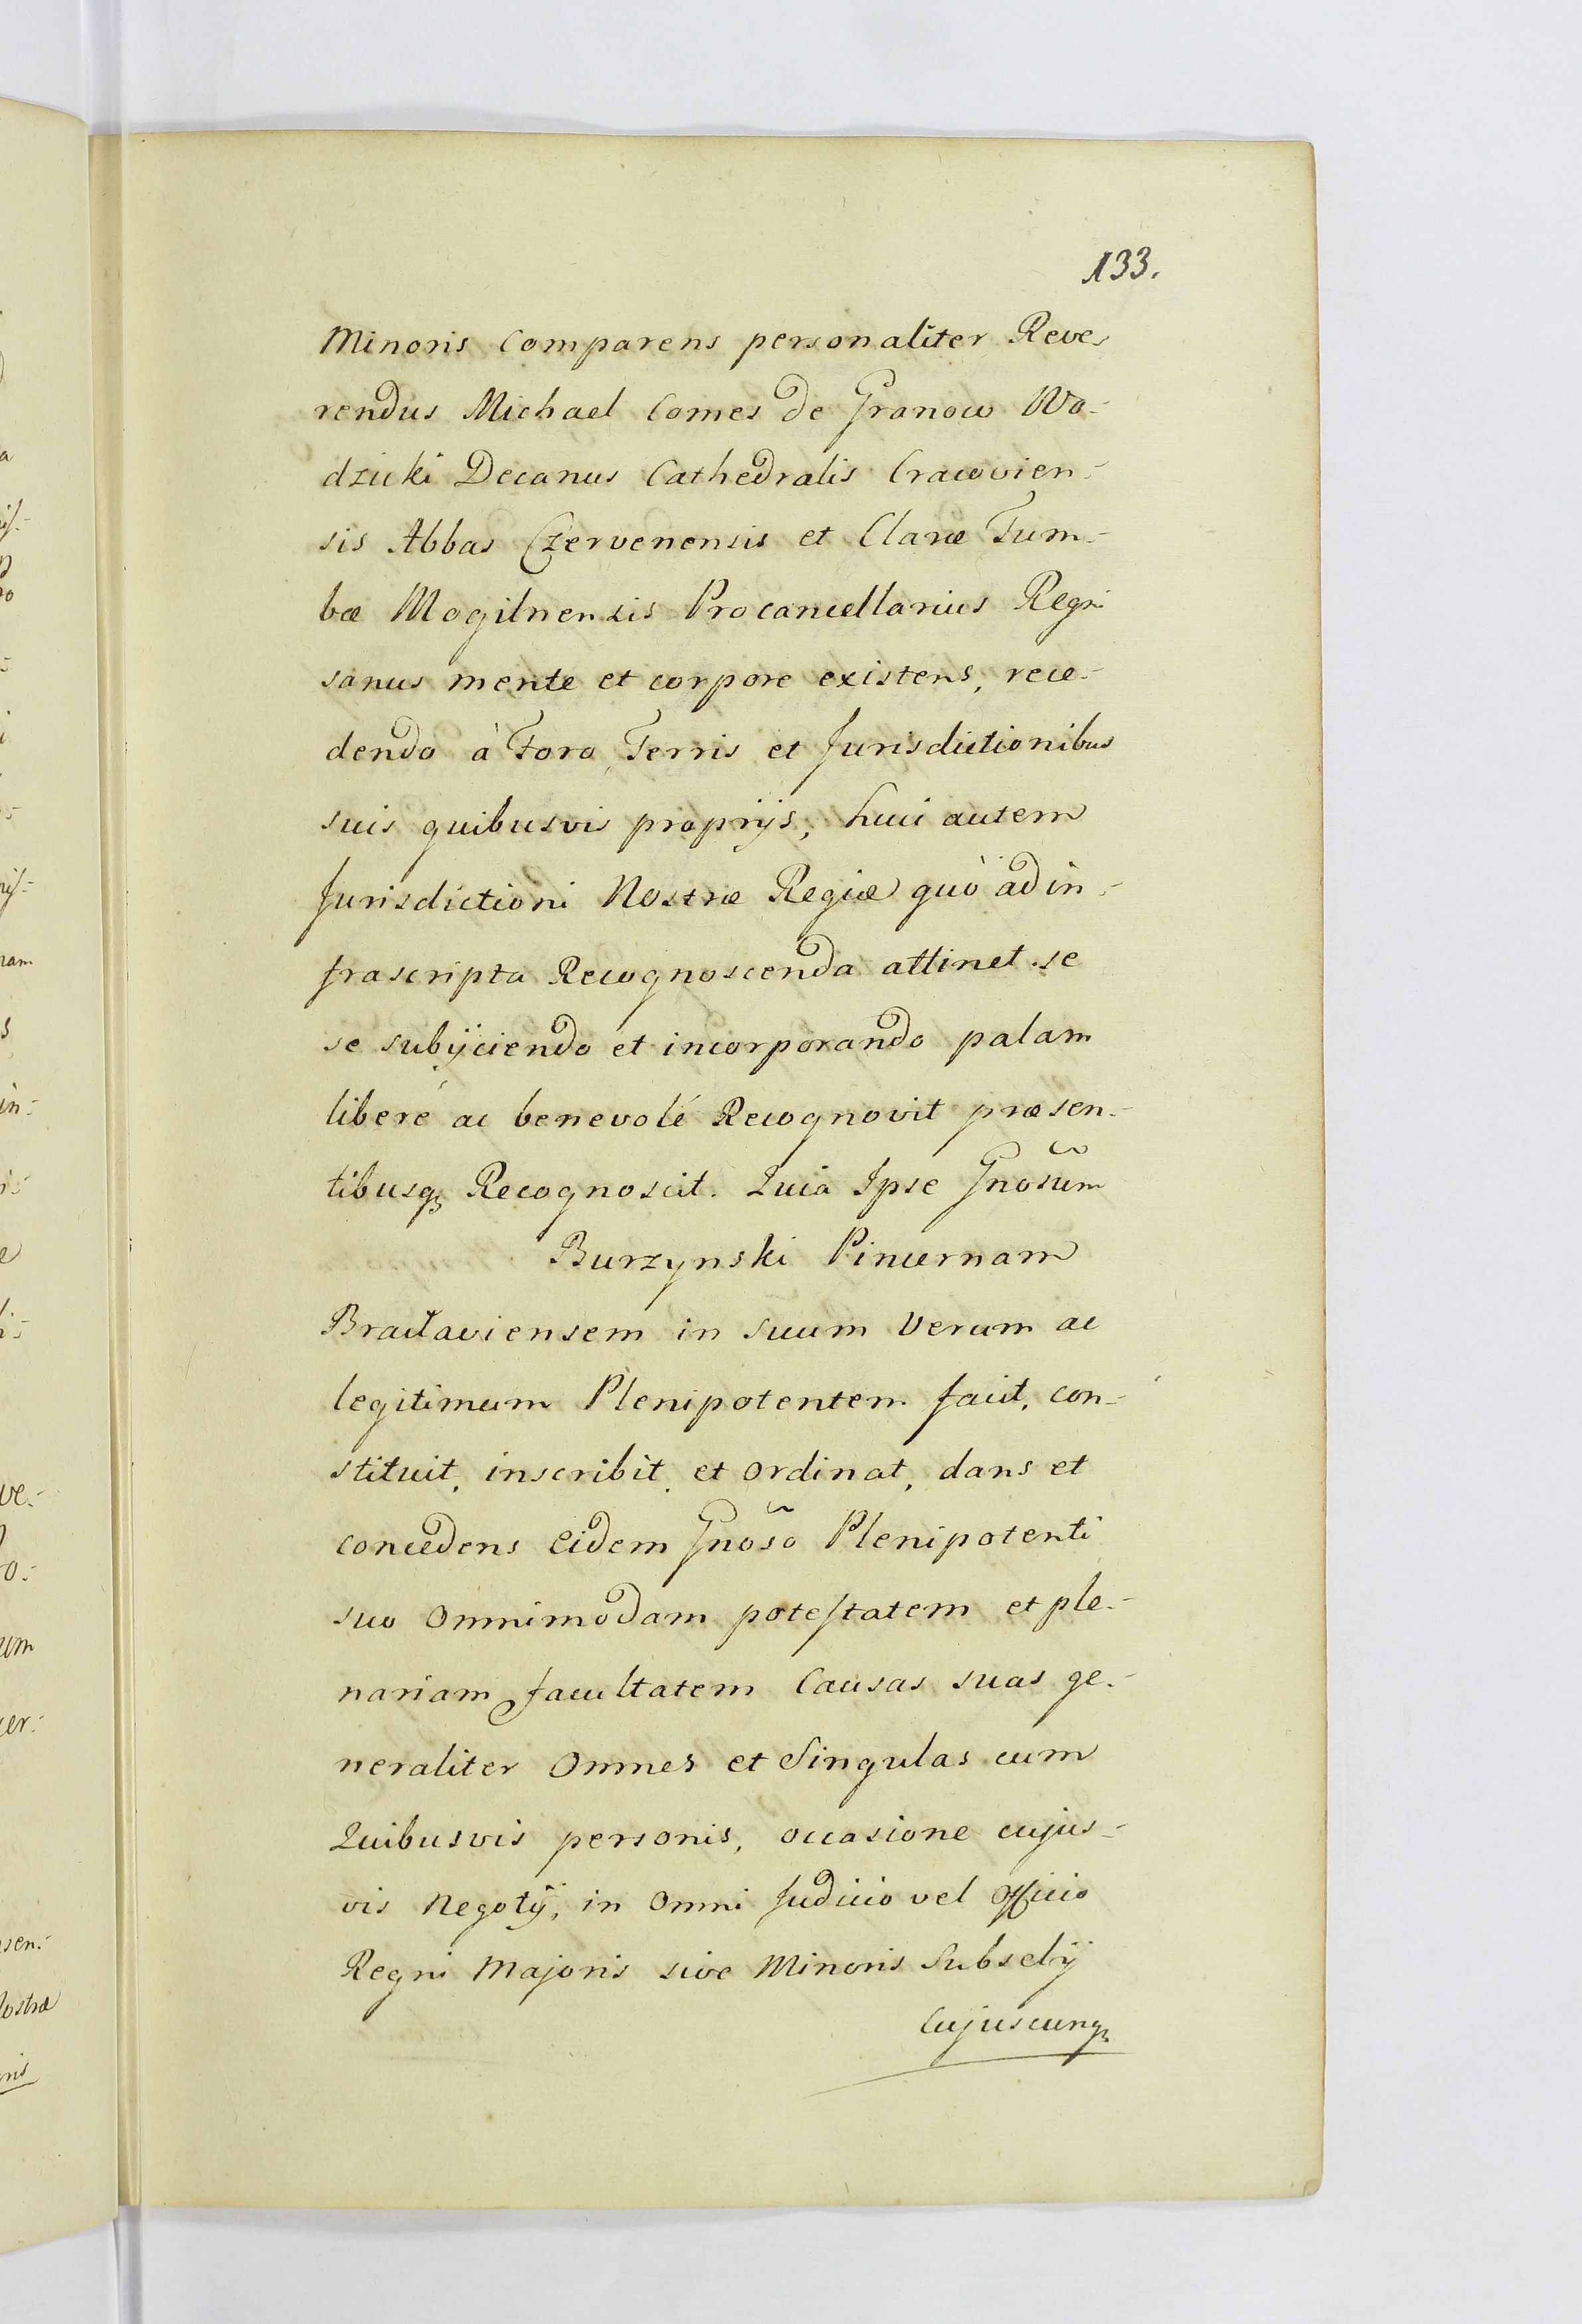 133.
Minoris Comparens personaliter Reve-
rendus Michael Comes de Granow Wo-
dzicki Decanus Cathedralis Cracovien-
sis Abbas Czervenensis et Claræ Tum-
bæ Mogilnensis Procancellarius Regni
sanus mente et corpore existens, rece-
dendo à Foro, Terris et Jurisdictionibus
suis quibusvis proprijs, huic autem
Jurisdictioni Nostræ Regiæ quò ad in-
frascripta Recognoscenda attinet se
se subijciendo et incorporando palam
liberé ac benevolé Recognovit præsen-
tibusq Recognoscit. Quia Ipse Gnosum
Burzynski Pincernam
Braclaviensem in suum Verum ac
legitimum Plenipotentem facit, con-
stituit, inscribit et Ordinat, dans et
concedens Eidem Gnõso Plenipotenti
suo Omnimodam potestatem et ple-
nariam facultatem Causas suas ge-
neraliter Omnes et Singulas cum
Quibusvis personis, occasione cujus-
vis Negotij, in Omni Judicio vel Officio
Regni Majoris sive Minoris Subselij
Cujuscunq